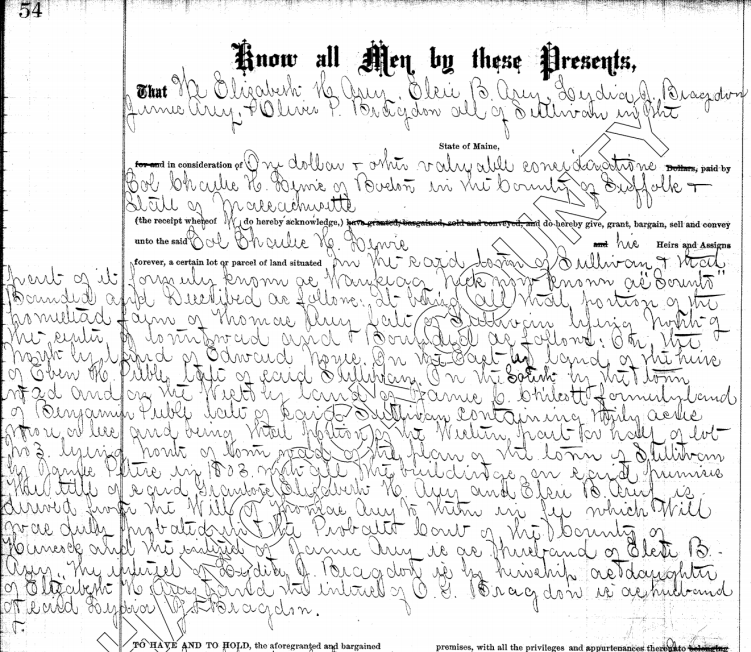 54
Know all Men by these Presents,
That We Elizabeth H. Arey, Elsie B. Arey, Lydia J. Bragdon
James Arey, & Oliver P. Bragdon all of Sullivan in the
State of Maine,
for and in consideration of One dollar & other valuable considerations Dollars, paid by
Col Charles H. of Boston in the County of Suffolk &
State of Massachusetts
(the receipt whereof We do hereby acknowledge,) have granted, bargained, sold and conveyed, and do hereby give, grant, bargain, sell and convey
unto the said Col Charles H. and his Heirs and Assigns
forever, a certain lot or parcel of land situated in the said town of Sullivan & that
part of it formerly known as Neck now known as "Sorrento"
Bounded and Described as follows: It being all that portion of the
homestead farm of Thomas Arey late of Sullivan lying North of
the centre of town road and Bounded as follows: On the
North by land of Edward On the East by land of the heirs
of Eben H. Preble late of said Sullivan. On the South by the town
road and on the West by land of James C. Chilcott formerly land
of Benjamin Preble late of said Sullivan containing acres
more or less and being that portion of the Western part or half of lot
No 3. lying North of town road the plan of the town of Sullivan
by James Peters in 1803. with all the buildings on said premises
The title of said Grantors Elizabeth H. Arey and Elsie B. Arey is
derived from the Will of Thomas Arey to them in fee which Will
was duly probated in the Probate Court of the County of
Hancock and the interest of James Arey is as Husband of Elsie B.
Arey. The interest of Lydia J. Bragdon is by heirship as daughter
of Elizabeth H. Arey and the interest of O. P. Bragdon is as husband
of said Lydia J. Bragdon.
TO HAVE AND TO HOLD, the aforegranted and bargained premises, with all the privileges and appurtenances thereunto belonging
HANCOCK COUNTY